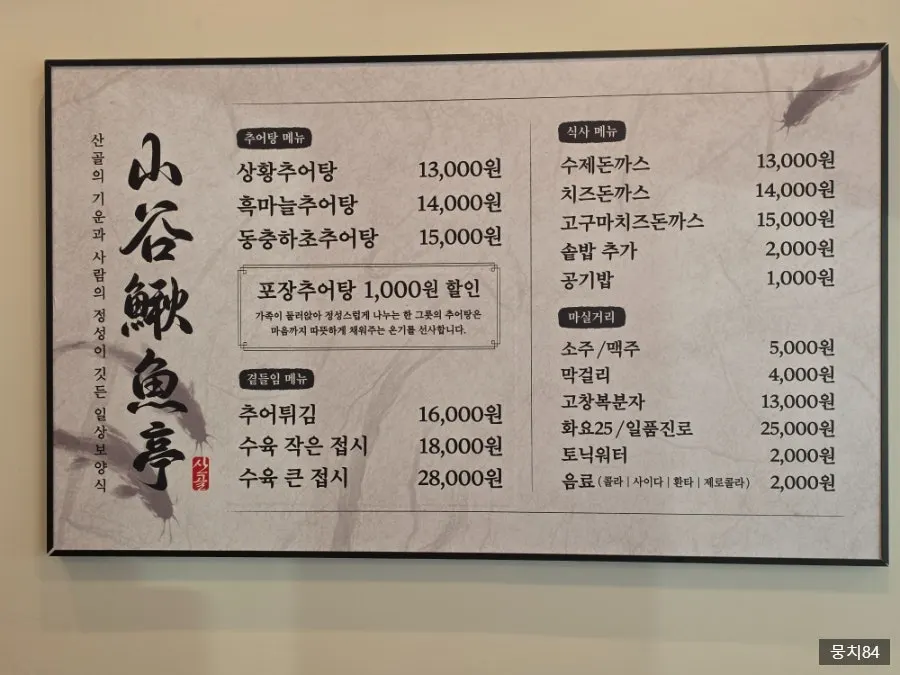 산골의 기운과 사람의 정성이 깃든 일상보양식
山谷鰍魚亭
산골
추어탕 메뉴
상황추어탕 13,000원
흑마늘추어탕 14,000원
동충하초추어탕 15,000원
포장추어탕 1,000원 할인
가족이 둘러앉아 정성스럽게 나누는 한 그릇의 추어탕은
마음까지 따뜻하게 채워주는 온기를 선사합니다.
곁들임 메뉴
추어튀김 16,000원
수육 작은 접시 18,000원
수육 큰 접시 28,000원
식사 메뉴
수제돈까스 13,000원
치즈돈까스 14,000원
고구마치즈돈까스 15,000원
솥밥 추가 2,000원
공기밥 1,000원
마실거리
소주/맥주 5,000원
막걸리 4,000원
고창복분자 13,000원
화요25/일품진로 25,000원
토닉워터 2,000원
음료(콜라|사이다|환타|제로콜라) 2,000원
뭉치84